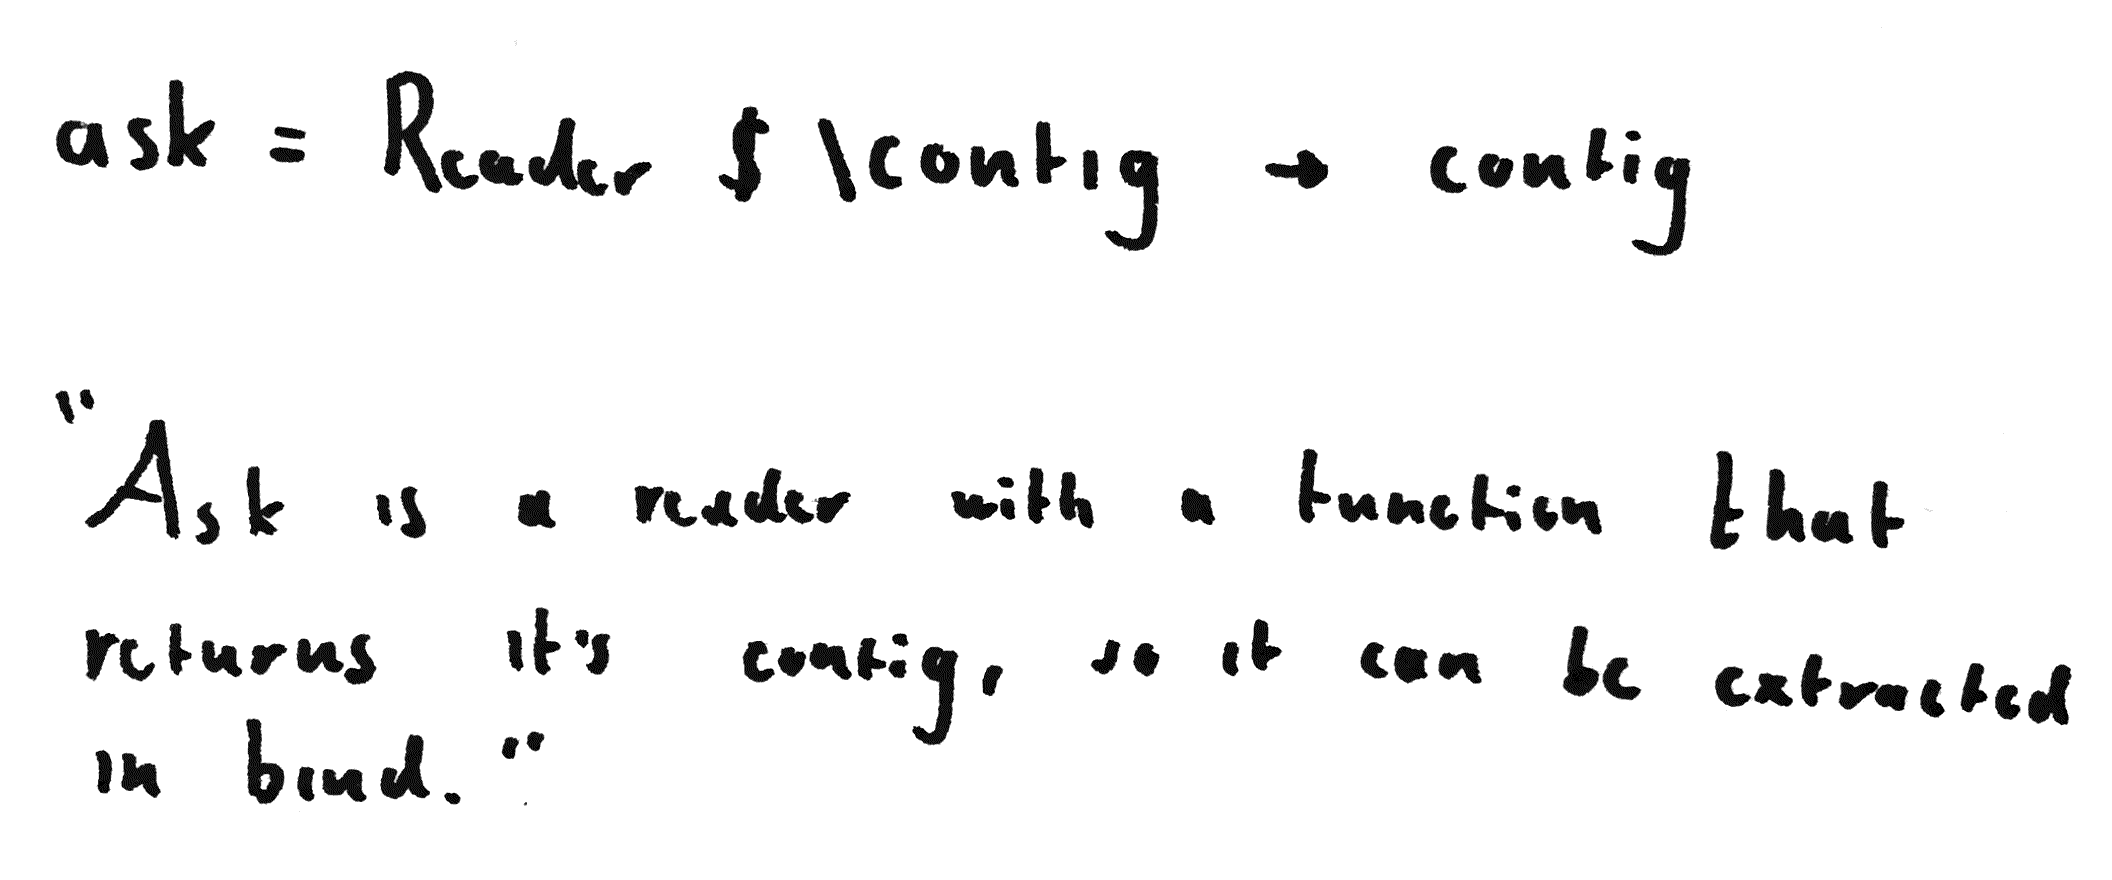 ask = Reader $ \config → config
"Ask is a reader with a function that
returns it's config, so it can be extracted
in bind."